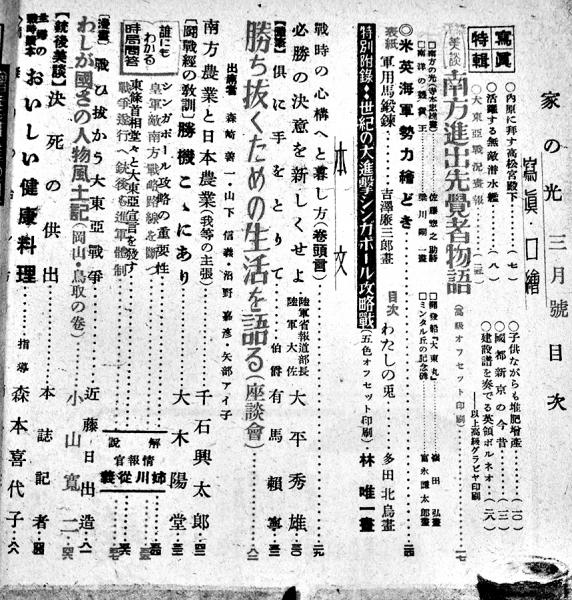 家の光 三月號目次
寫眞口繪
寫眞特輯
○内原に拜す高松宮殿下
○活躍する無敵潛水艦
○大東亞戰況畫報
○子供ながらも堆肥増産
○國都新京の今昔
○建設譜を奏でる英領ボルネオ
以上高級グラビヤ印刷
美談 南方進出先覺者物語
(高級オフセット印刷)
南洋の雜貨王
梁川剛一畫
開發船「大東丸」
嶺田弘畫
ミンタル丘の記念碑
富永謙太郎畫
◎米英海軍勢力繪どき
表紙 軍用馬鍛錬
吉澤廉三郎畫
目次 わたしの兎
多田北烏畫
特別附錄・世紀の大進擊シンガポール攻略戰(五色オフセット印刷)
林唯一畫
本文
戰時の心構へと暮し方(卷頭言)
必勝の決意を新しくせよ
陸軍省報道部長 陸軍大佐 大平秀雄
俱に手をとりて
伯爵 有馬賴寧
勝ち抜くための生活を語る(座談會)
出席者 森崎善一・山下信義・沼野嘉彦・矢部アイ子
南方農業と日本農業(我等の主張)
千石興太郎
[鬪戰經の教訓]勝機こゝにあり
大木陽堂
誰にもわかる 時局問答
シンガポール攻略の重要性
皇軍敵南方戰略路線を斷つ
東條首相堂々と大東亞宣言を發す
戰爭遂行へ銃後も進軍體制
解說 情報官 姉川從義
[漫畫]戰ひ拔かう大東亞戰爭
近藤日出造
わしが國さの人物風土記(岡山・鳥取の卷)
小山寬二
【銃後美談】決死の供出
本誌記者
おいしい健康料理
指導 森本喜代子